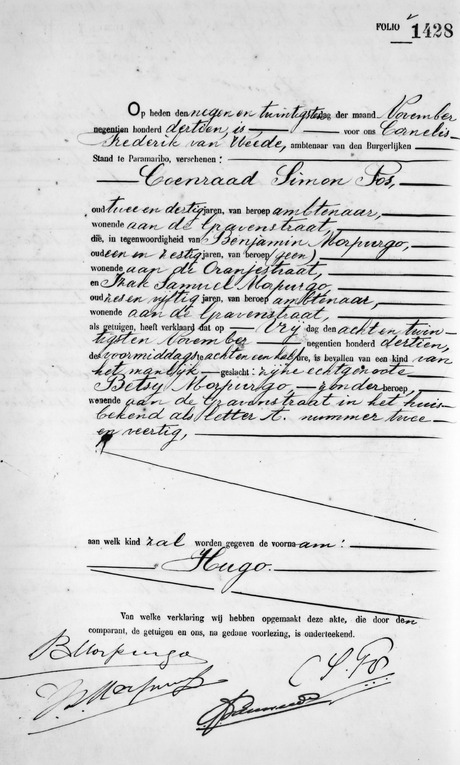 FOLIO 1428
Op heden den negen en twintigsten dag der maand November
negentien honderd dertien, is voor ons Cornelis
Frederik van Weede, ambtenaar van den Burgerlijken
Stand te Paramaribo, verschenen:
Coenraad Simon Fos,
oud twee en dertig jaren, van beroep ambtenaar,
wonende aan de Gravenstraat,
die, in tegenwoordigheid van Benjamin Morpurgo,
oud een en zestig jaren, van beroep (geen)
wonende aan de Oranjestraat,
en Izak Samuel Mopurgo,
oud zes en vijftig jaren, van beroep ambtenaar,
wonende aan de Gravenstraat,
als getuigen, heeft verklaard dat op Vrij dag den acht en twin-
tigsten November, negentien honderd dertien,
des voormiddags te acht en een half ure, is bevallen van een kind van
het manlijk geslacht: zijne echtgenoote
Betsy Morpurgo, zonder beroep,
wonende aan de Gravenstraat in het huis
bekend als letter A. nummer twee
en veertig,
aan welk kind zal worden gegeven de voornaam:
Hugo.
Van welke verklaring wij hebben opgemaakt deze akte, die door den
comparant, de getuigen en ons, na gedane voorlezing, is onderteekend.
BMorpurgo
C S. Fos